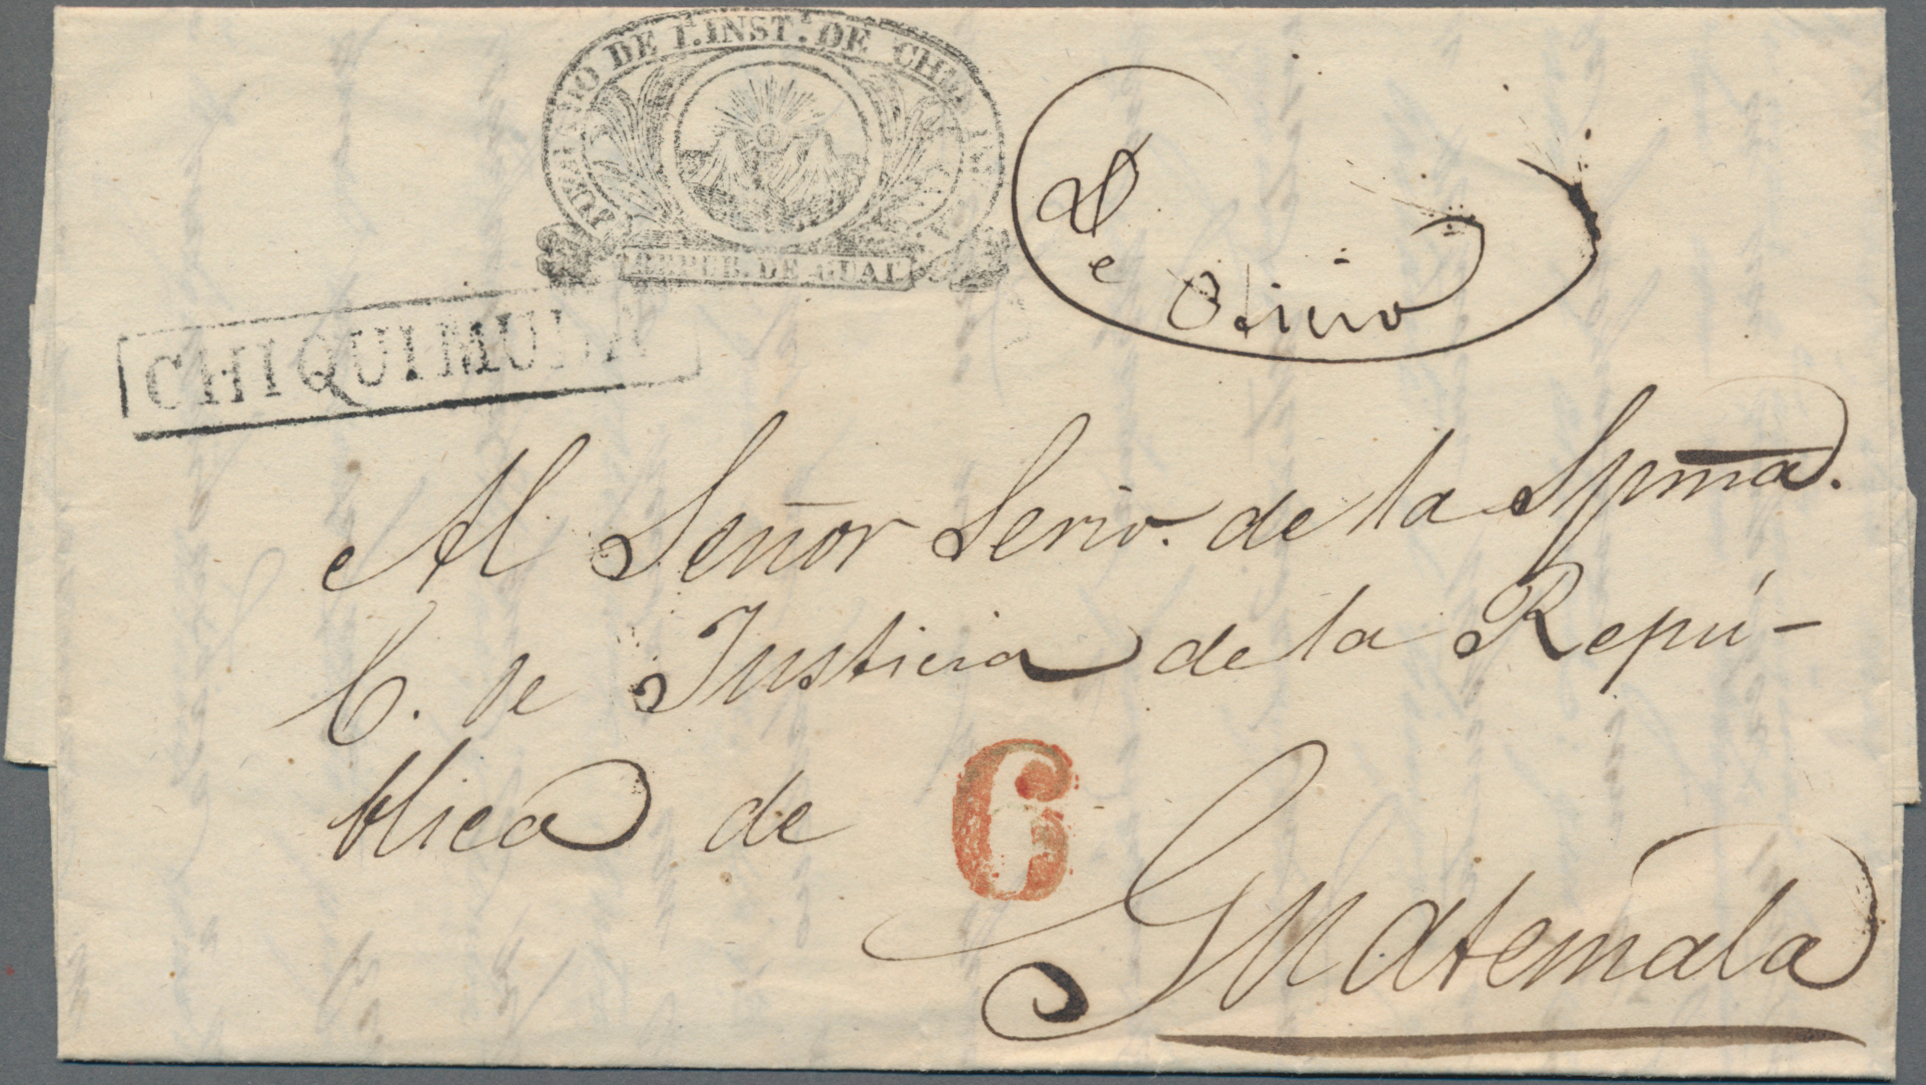 JUZGADO DE 1ª. INSTª. DE
REPUB. DE GUAT.
CHIQUIMULA
De
Oficio
Al Señor Serio. de la Spma.
C. de Justicia de la Repú-
blica de
6
Guatemala